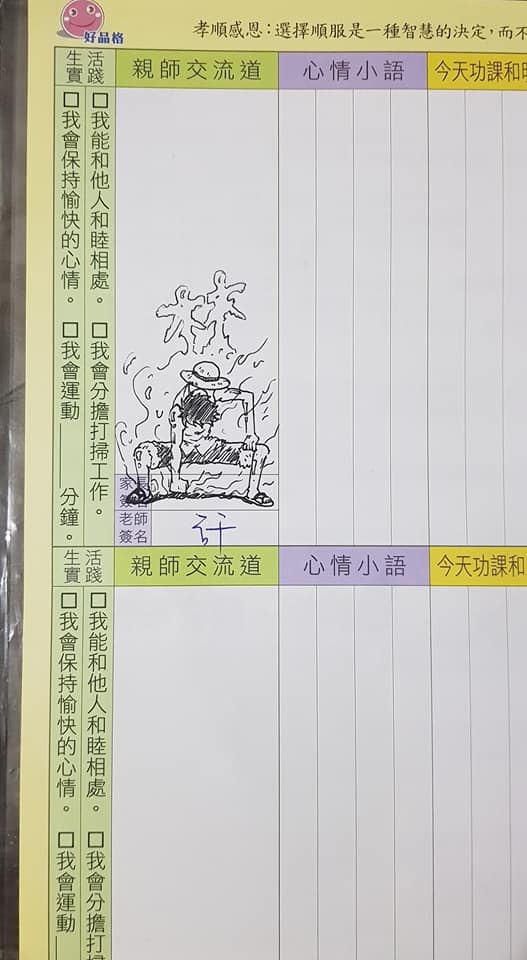 好品格
孝順感恩：選擇順服是一種智慧的決定，而不
生活
實踐
親師交流道
心情小語
今天功課和
□我能和他人和睦相處。 □我會分擔打掃工作。
□我會保持愉快的心情。 □我會運動____分鐘。
家長
簽名
老師
簽名
生活
實踐
親師交流道
心情小語
今天功課和
□我能和他人和睦相處。 □我會分擔打掃
□我會保持愉快的心情。 □我會運動